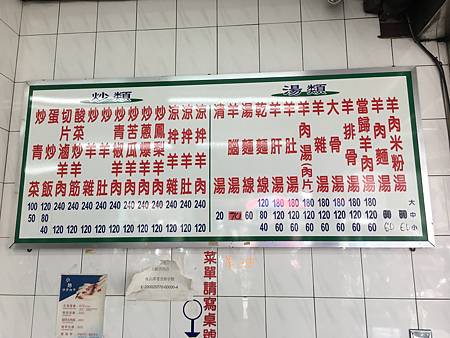 炒類
炒青菜
蛋炒飯
切片滷羊肉
酸菜炒羊筋
炒羊雜
炒羊肚
炒青椒羊肉
炒苦瓜羊肉
炒蔥爆羊肉
炒鳳梨羊肉
涼拌羊雜
涼拌羊肚
涼拌羊肉
100 120 240 240 240 240 240 240 240 240 240 240 240
50 80
40 120 120 120 120 120 120 120 120 120 120 120
湯類
清湯
羊腦湯
湯麵線
乾麵線
羊肝湯
羊肚湯
羊肉湯(肉片)
羊雜湯
大骨湯
羊排骨湯
當歸羊肉湯
羊肉麵
羊肉米粉湯
120 180 180 180 120 180 180 180 大
20 70 60 60 80 120 120 120 80 120 120 120 中
40 60 60 60 40 60 60 60 60 60 小
菜單請寫桌號